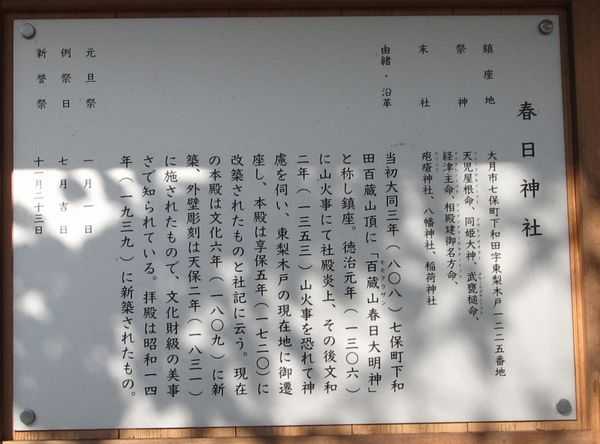 春日神社
鎮座地 大月市七保町下和田字東梨木戸一二二五番地
祭神 天児屋根命、同姫大神、武甕槌命、
経津主命、相殿建御名方命、
末社 疱瘡神社、八幡神社、稲荷神社
由緒・沿革
当初大同三年(八〇八)七保町下和
田百蔵山頂に「百蔵山春日大明神」
と称し鎮座。徳治元年(一三〇六)
に山火事にて社殿炎上、その後文和
二年(一三五三)山火事を恐れて神
慮を伺い、東梨木戸の現在地に御遷
座し、本殿は享保五年(一七二〇)に
改築されたものと社記に云う。現在
の本殿は文化六年(一八〇九)に新
築、外壁彫刻は天保二年(一八三一)
に施されたもので、文化財級の美事
さで知られている。拝殿は昭和一四
年(一九三九)に新築されたもの。
元旦祭 一月一日
例祭日 七月吉日
新嘗祭 十一月二十三日